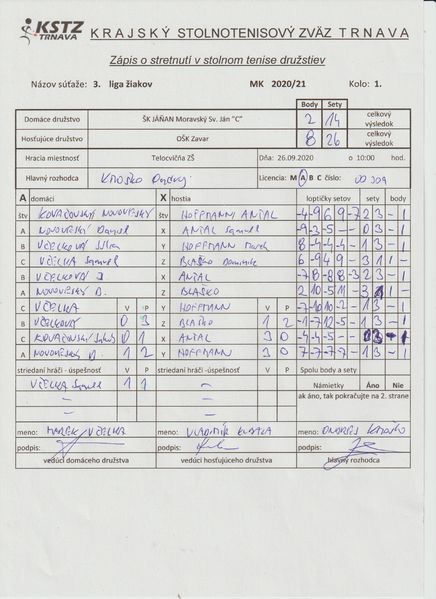 KSTZ TRNAVA KRAJSKÝ STOLNOTENISOVÝ ZVÄZ TRNAVA
Zápis o stretnutí v stolnom tenise družstiev
Názov súťaže: 3. liga žiakov MK 2020/21 Kolo: 1.
Body Sety
Domáce družstvo ŠK JÁŇAN Moravský Sv. Ján "C" 2 14 celkový výsledok
Hosťujúce družstvo OŠK Zavar 8 26 celkový výsledok
Hracia miestnosť Telocvičňa ZŠ Dňa: 26.09.2020 o 10:00 hod.
Hlavný rozhodca Licencia: M A B C číslo:
A domáci X hostia loptičky setov sety body
štv štv HOFFMANN ANTAL -4 -9 6 9 -7 2 3 - 1
A NOVOVESKÝ Daniel X ANTAL Samuel -9 -3 -5 - - 0 3 - 1
B VČELKOVÁ Y HOFFMANN Marek 8 -4 -4 -4 - 1 3 - 1
C VČELKA Samuel Z BLAŠKO Dominik 6 -9 4 9 - 3 1 1 -
B VČELKOVÁ X ANTAL -7 8 -8 8 -3 2 3 - 1
A NOVOVESKÝ D. Z BLAŠKO 2 10 -5 11 - 3 1 1 -
C VČELKA V P Y HOFFMANN V P -7 -10 10 -2 - 1 3 - 1
B VČELKOVÁ 0 3 Z BLAŠKO 1 2 -1 -7 12 -5 - 1 3 - 1
C 0 1 X ANTAL 3 0 -4 -4 -5 - - 0 3 - 1
A NOVOVESKÝ D. 1 2 Y HOFFMANN 3 0 7 -7 -7 -7 - 1 3 - 1
striedaní hráči - úspešnosť V P striedaní hráči - úspešnosť V P Spolu body a sety
VČELKA Samuel 1 1 – Námietky Áno Nie
– – ak áno, tak pokračujte na 2. strane
– –
meno: MAREK VČELKA meno: VLADIMÍR meno: ONDREJ KMOŠKO
podpis: podpis: podpis:
vedúci domáceho družstva vedúci hosťujúceho družstva hlavný rozhodca